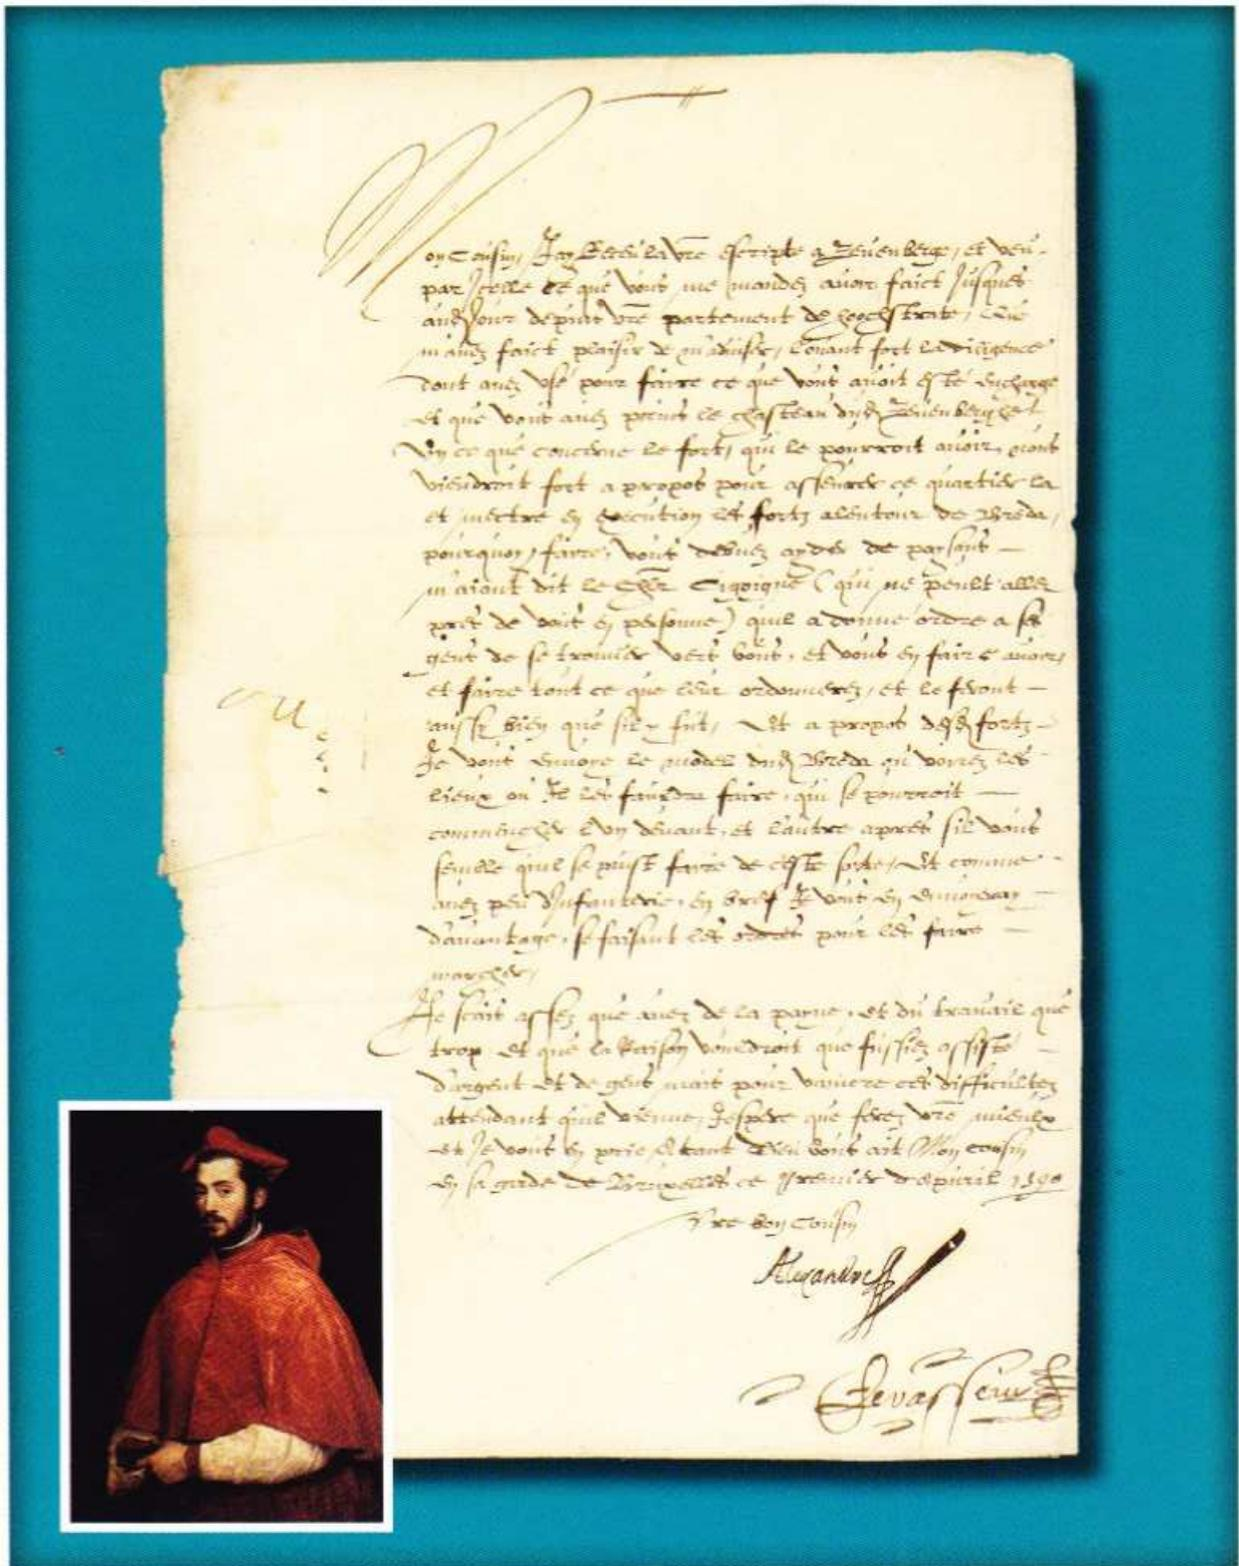 Mon Cousin, J'ay Receu la vre escripte a Zevenberge, et veu
par Icelle ce que vous me mandez avoir faict Jusques
audt Jour depuis vre partement de hoochstrate, 
m'avez faict plaisir de m'adviser, louant fort la diligence
dont avez usé pour faire ce que vous avoit esté encharge
et que vous avez prins le chasteau dudt Zevenberghe
En ce que concerne le fort, qui le pourroit avoir, nous
viendroit fort a propos pour asseurer ce quartier la
et mectre en execution les fortz alentour de Breda,
pourquoy faire, vous debvez ayder de paysans
m'aiant dit le Sgr Cigoigne (qui ne peult aller
pres de vous en personne) qu'il a donne ordre a ses
gens de se trouver vers vous, et vous en faire avoir,
et faire tout ce que leur ordonnerez, et le feront
aussi bien que s'il y fut, Et a propos desdt fortz
Je vous envoye le model dudt Breda ou voirrez les
lieux ou Il les fauldra faire, qui se pourroit
commencher l'un devant, et l'autre apres s'il vous
semble qu'il se puist faire de ceste sorte, Et comme
avez peu d'Infanterie, en bref Je vous en envoieray
d'avantage, se faisant les ordres pour les faire
marcher,
Je scais assez que avez de la payne, et du travail que
trop, et que la Raison vouldroit que fussiez assisté
d'argent et de gens, mais pour vaincre ces difficultez
attendant qu'il vienne, J'espere que ferez vre mieulx
et Je vous en prie, A tant Dieu vous ait Mon cousin
en sa garde de Bruxelles ce premier d'Apvril 1590
Vre bon Cousin
Alexandre
Levasseur